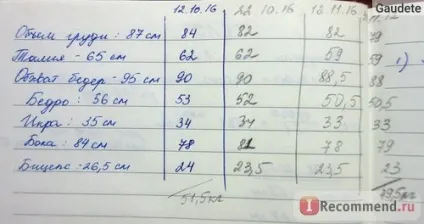 Gaudete
12.10.16 22.10.16 12.11.16
Объем груди: 87 см 84 82 82 79
Талия - 65 см 62 62 59 59
Обхват бедер - 95 см 90 90 88,5 88
Бедро: 56 см 53 52 50,5 50,5
Икра: 35 см 34 34 33 33
Бока: 84 см 78 81 78 79
Бицепс - 26,5 см 24 23,5 23,5 23
51,5кг
I Recommend.ru